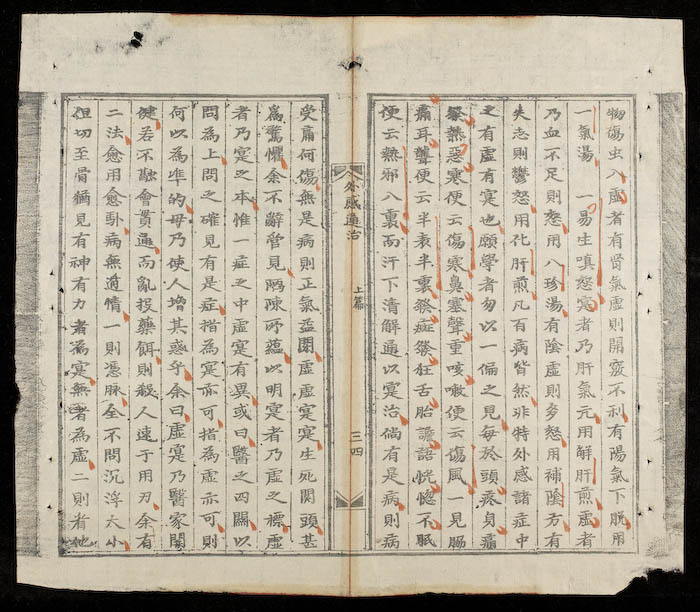 物傷虫入虛者有腎氣虛則開竅不利有陽氣下脫用
一氣湯 一易生嗔怒寔者乃肝氣元用解肝煎虛者
乃血不足則怒用八珍湯有陰虛則多怒用補陰方有
失志則鬱怒用化肝煎凡有病皆然非特外感諸症中
之有虛有寔也願學者勿以一偏之見每於頭疼身痛
發熱惡寒便云傷寒鼻塞聲重咳嗽便云傷風一見脇
痛耳聾便云半表半裏發症發狂舌胎譫語恍惚不眠
便云熱邪入裏而汗下清解通以寔治倘有是病則病
外感通治
上篇
三四
受藥何傷無是病則正氣益閉虛虛寔寔生死關頭甚
為驚懼余不辭管見陋陳呼蘊以明寔者乃虛之標虛
者乃寔之本惟一症之中虛寔有異或曰醫之四關以
問為上問之確見有是症指為寔亦可指為虛亦可則
何以為準的毋乃使人增其惑乎余曰虛寔乃醫家關
健若不融會貫通而亂投藥餌則殺人速于用刃余有
二法愈用愈臥病無遁情一則憑脉全不問沉浮大小
但切至骨猶見有神有力者為寔無者為虛二則看他